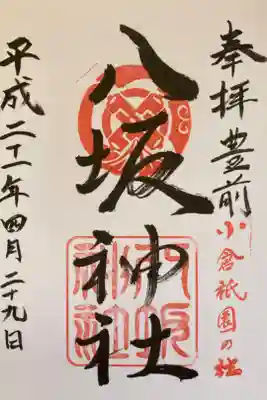 奉拝 豊前小倉祇園の社
八坂神社
平成二十一年四月二十九日
八坂神社